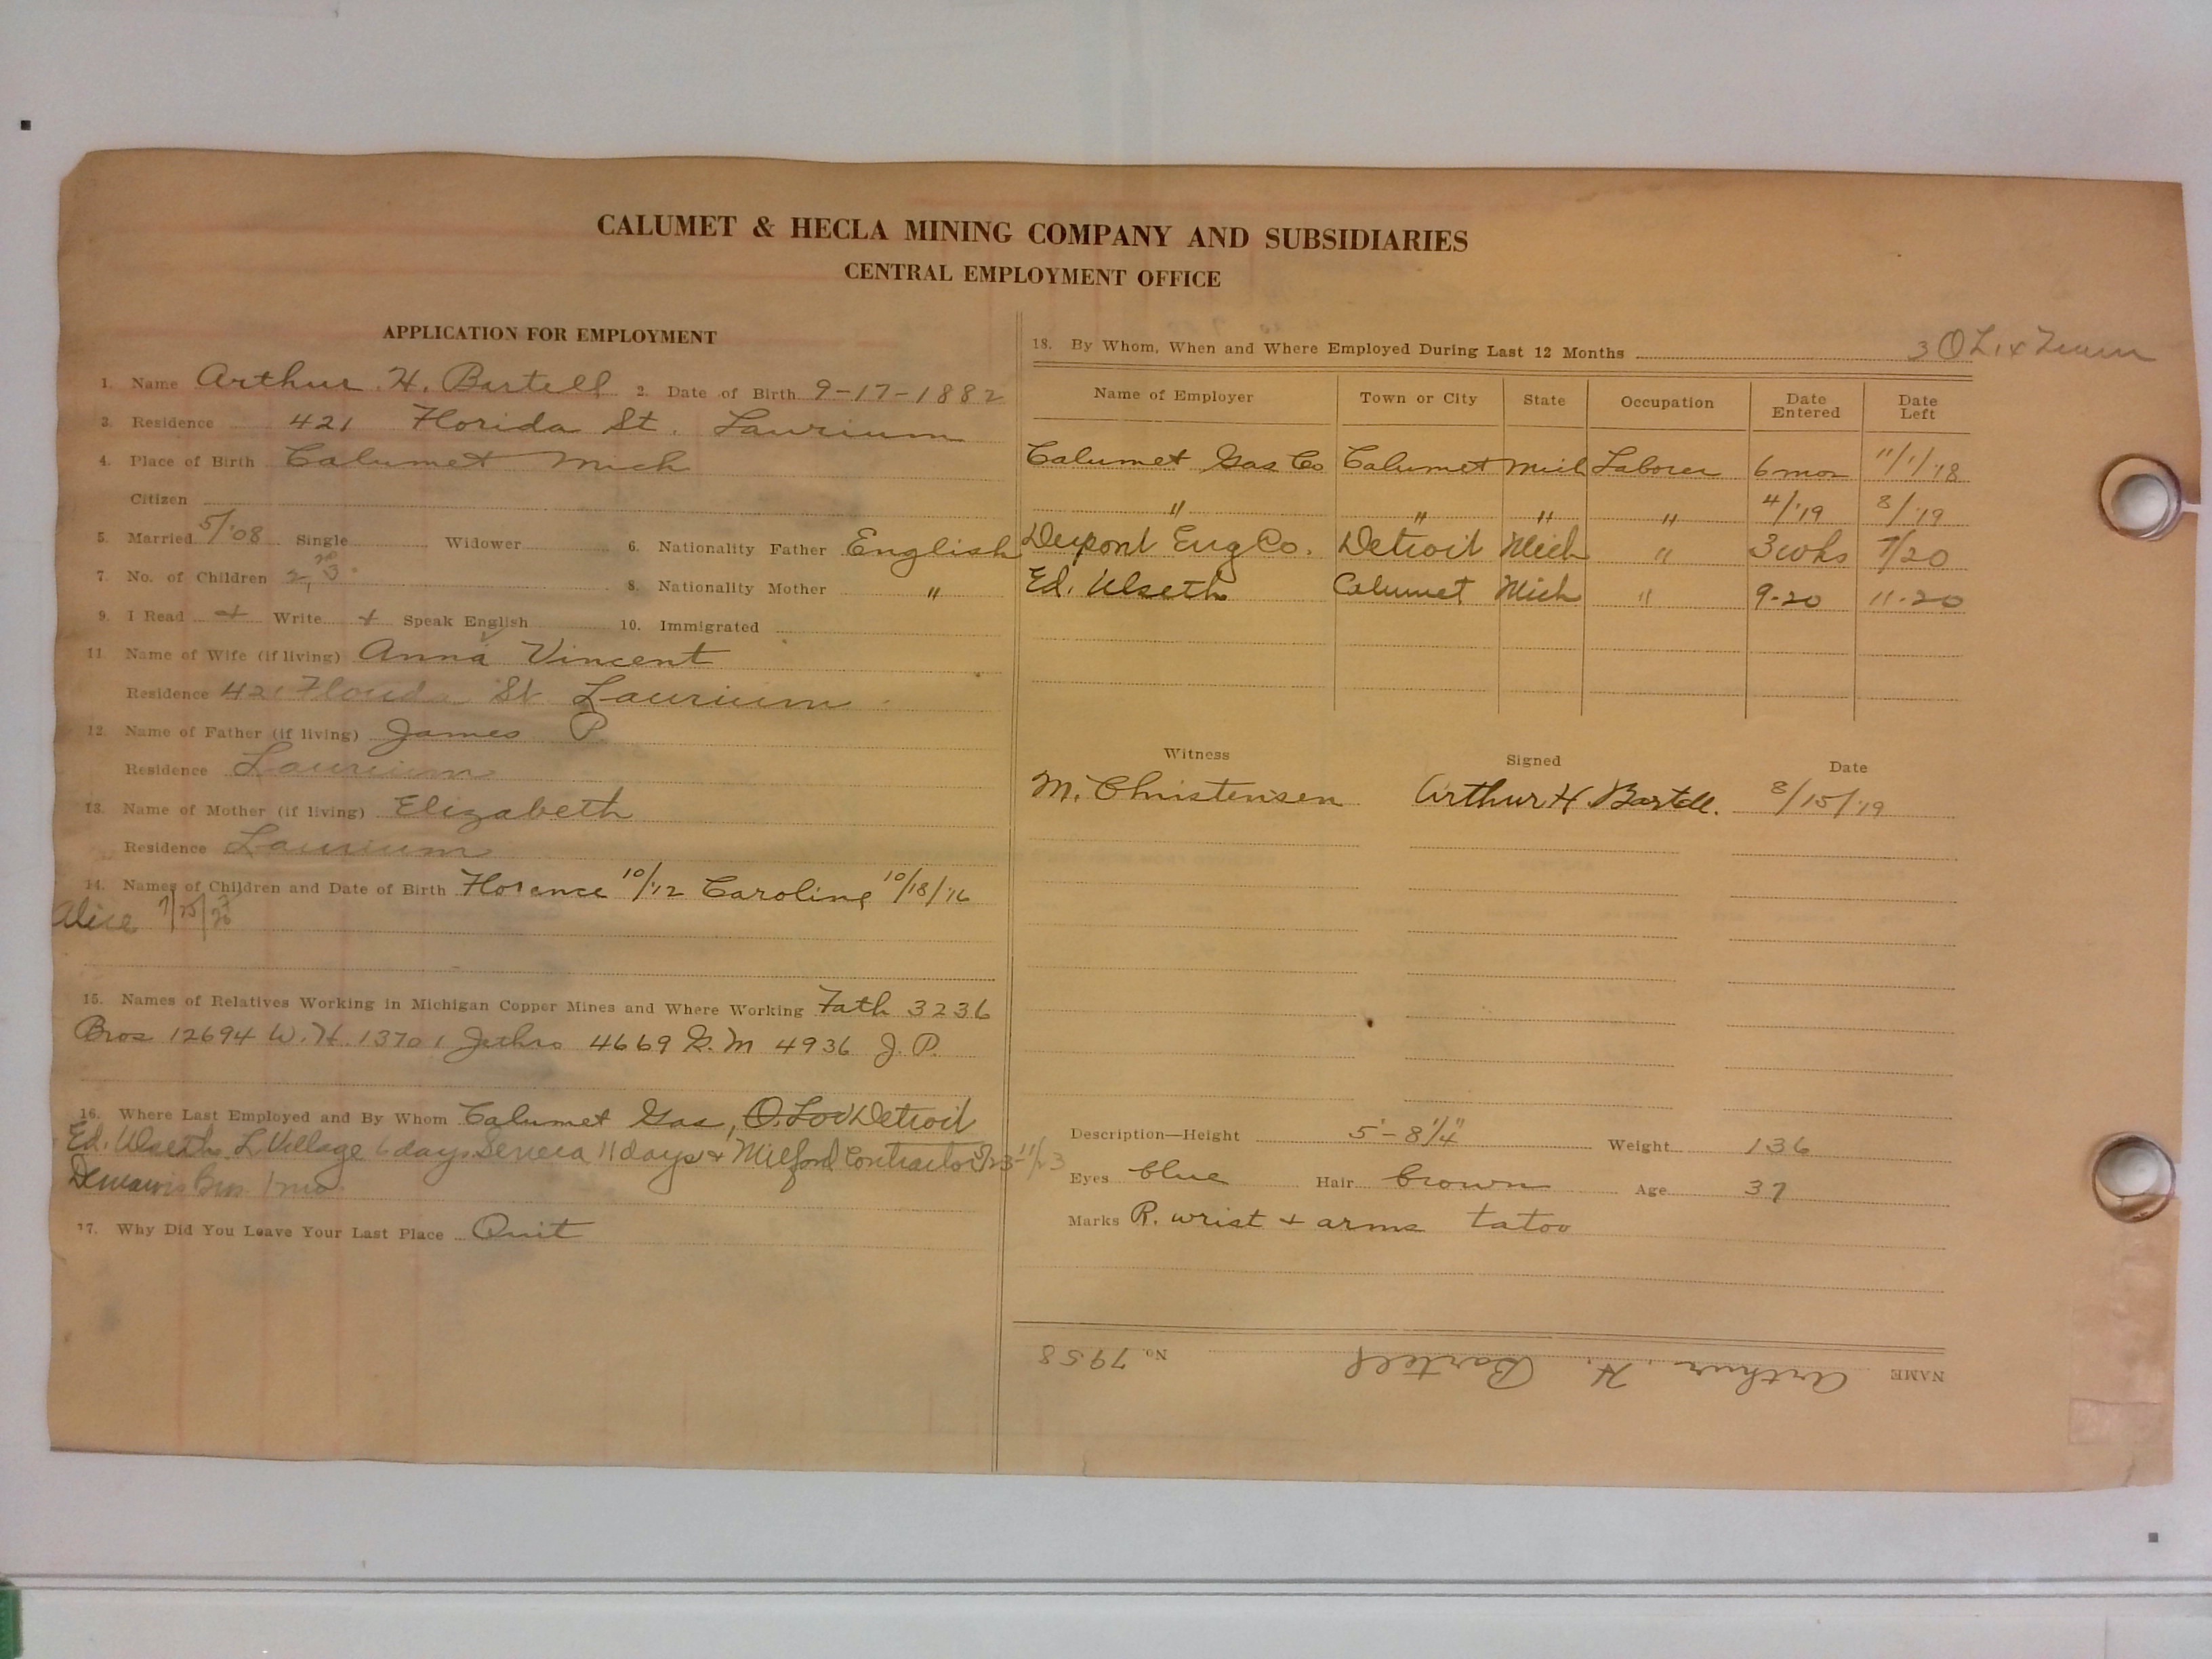 CALUMET & HECLA MINING COMPANY AND SUBSIDIARIES
CENTRAL EMPLOYMENT OFFICE
APPLICATION FOR EMPLOYMENT
1. Name Arthur H. Bartell 2. Date of Birth 9-17-1882
3. Residence 421 Florida St. Laurium
4. Place of Birth Calumet Mich
Citizen
5. Married 5/'08 Single Widower 6. Nationality Father English
7. No. of Children 2, 3 8. Nationality Mother "
9. I Read + Write + Speak English 10. Immigrated
11. Name of Wife (if living) Anna Vincent
Residence 421 Florida St Laurium
12. Name of Father (if living) James P.
Residence Laurium
13. Name of Mother (if living) Elizabeth
Residence Laurium
14. Names of Children and Date of Birth Florence 10/'12 Caroline 10/18/'16
Alice 7/25/
15. Names of Relatives Working in Michigan Copper Mines and Where Working Fath 3236
Bros 12694 W.H. 13701 Jethro 4669 G.M 4936 J.P.
16. Where Last Employed and By Whom Calumet Gas, Detroit
Ed. Ulseth L Village 6 days Seneca 11 days + Milford Contractor
1 mo
17. Why Did You Leave Your Last Place Quit
18. By Whom, When and Where Employed During Last 12 Months 3
Name of Employer Town or City State Occupation Date Entered Date Left
Calumet Gas Co Calumet Mich Laborer 6 mos 11/1/'18
" " " " 4/'19 8/'19
Dupont Eng Co. Detroit Mich " 3 wks 7/20
Ed. Ulseth Calumet Mich " 9-20 11-20
Witness Signed Date
M. Christensen Arthur H. Bartell. 8/15/'19
Description—Height 5'-8 1/4" Weight 136
Eyes blue Hair brown Age 37
Marks R. wrist + arms tatoo
NAME Arthur H. Bartell No. 7958